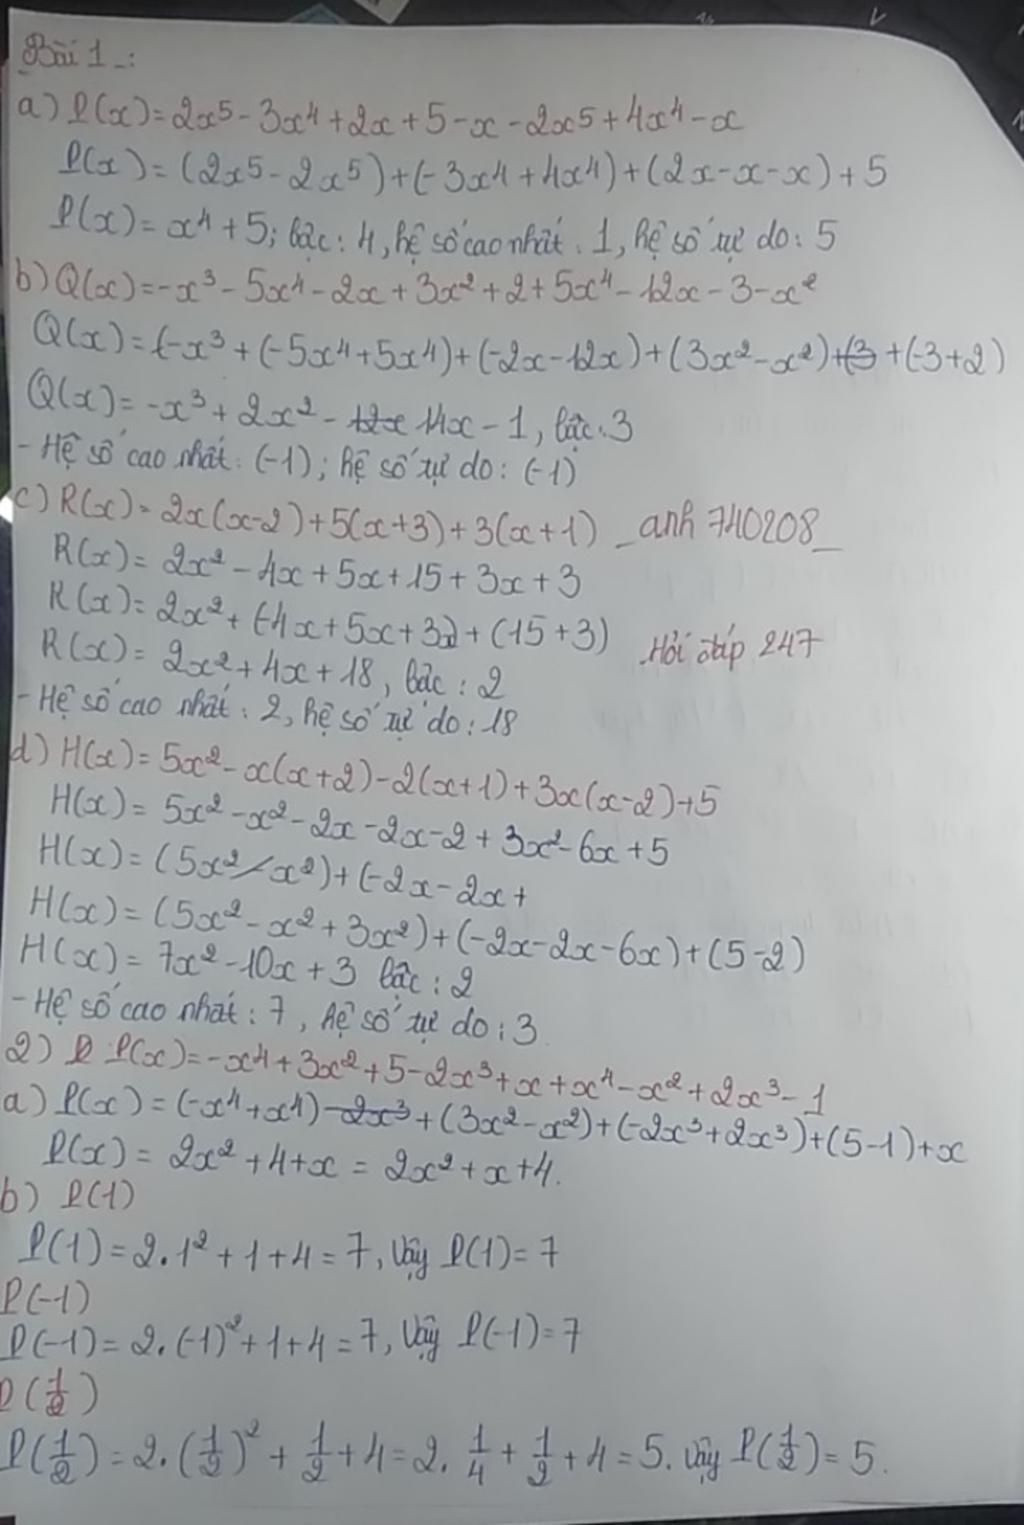 Bài 1:
a) P(x)=2x⁵-3x⁴+2x+5-x-2x⁵+4x⁴-x
P(x)=(2x⁵-2x⁵)+(-3x⁴+4x⁴)+(2x-x-x)+5
P(x)=x⁴+5; bậc: 4, hệ số cao nhất: 1, hệ số tự do: 5
b) Q(x)=-x³-5x⁴-2x+3x²+2+5x⁴-12x-3-x²
Q(x)=(-x³+(-5x⁴+5x⁴)+(-2x-12x)+(3x²-x²)+(3+(-3+2)
Q(x)=-x³+2x²-12x 14x-1, bậc: 3
- Hệ số cao nhất: (-1); hệ số tự do: (-1)
c) R(x)=2x(x-2)+5(x+3)+3(x+1) _anh 740208_
R(x)=2x²-4x+5x+15+3x+3
R(x)=2x²+(-4x+5x+3x)+(15+3) Hỏi đáp 247
R(x)=2x²+4x+18, bậc: 2
- Hệ số cao nhất: 2, hệ số tự do: 18
d) H(x)=5x²-x(x+2)-2(x+1)+3x(x-2)+5
H(x)=5x²-x²-2x-2x-2+3x²-6x+5
H(x)=(5x²-x²)+(-2x-2x+
H(x)=(5x²-x²+3x²)+(-2x-2x-6x)+(5-2)
H(x)=7x²-10x+3 bậc: 2
- Hệ số cao nhất: 7, hệ số tự do: 3
2) P(x)=-x⁴+3x²+5-2x³+x+x⁴-x²+2x³-1
a) P(x)=(-x⁴+x⁴)-2x³+(3x²-x²)+(-2x³+2x³)+(5-1)+x
P(x)=2x²+4+x=2x²+x+4.
b) P(1)
P(1)=2.1²+1+4=7, Vậy P(1)=7
P(-1)
P(-1)=2.(-1)²+1+4=7, Vậy P(-1)=7
P(1/2)
P(1/2)=2.(1/2)²+1/2+4=2.1/4+1/2+4=5. Vậy P(1/2)=5.